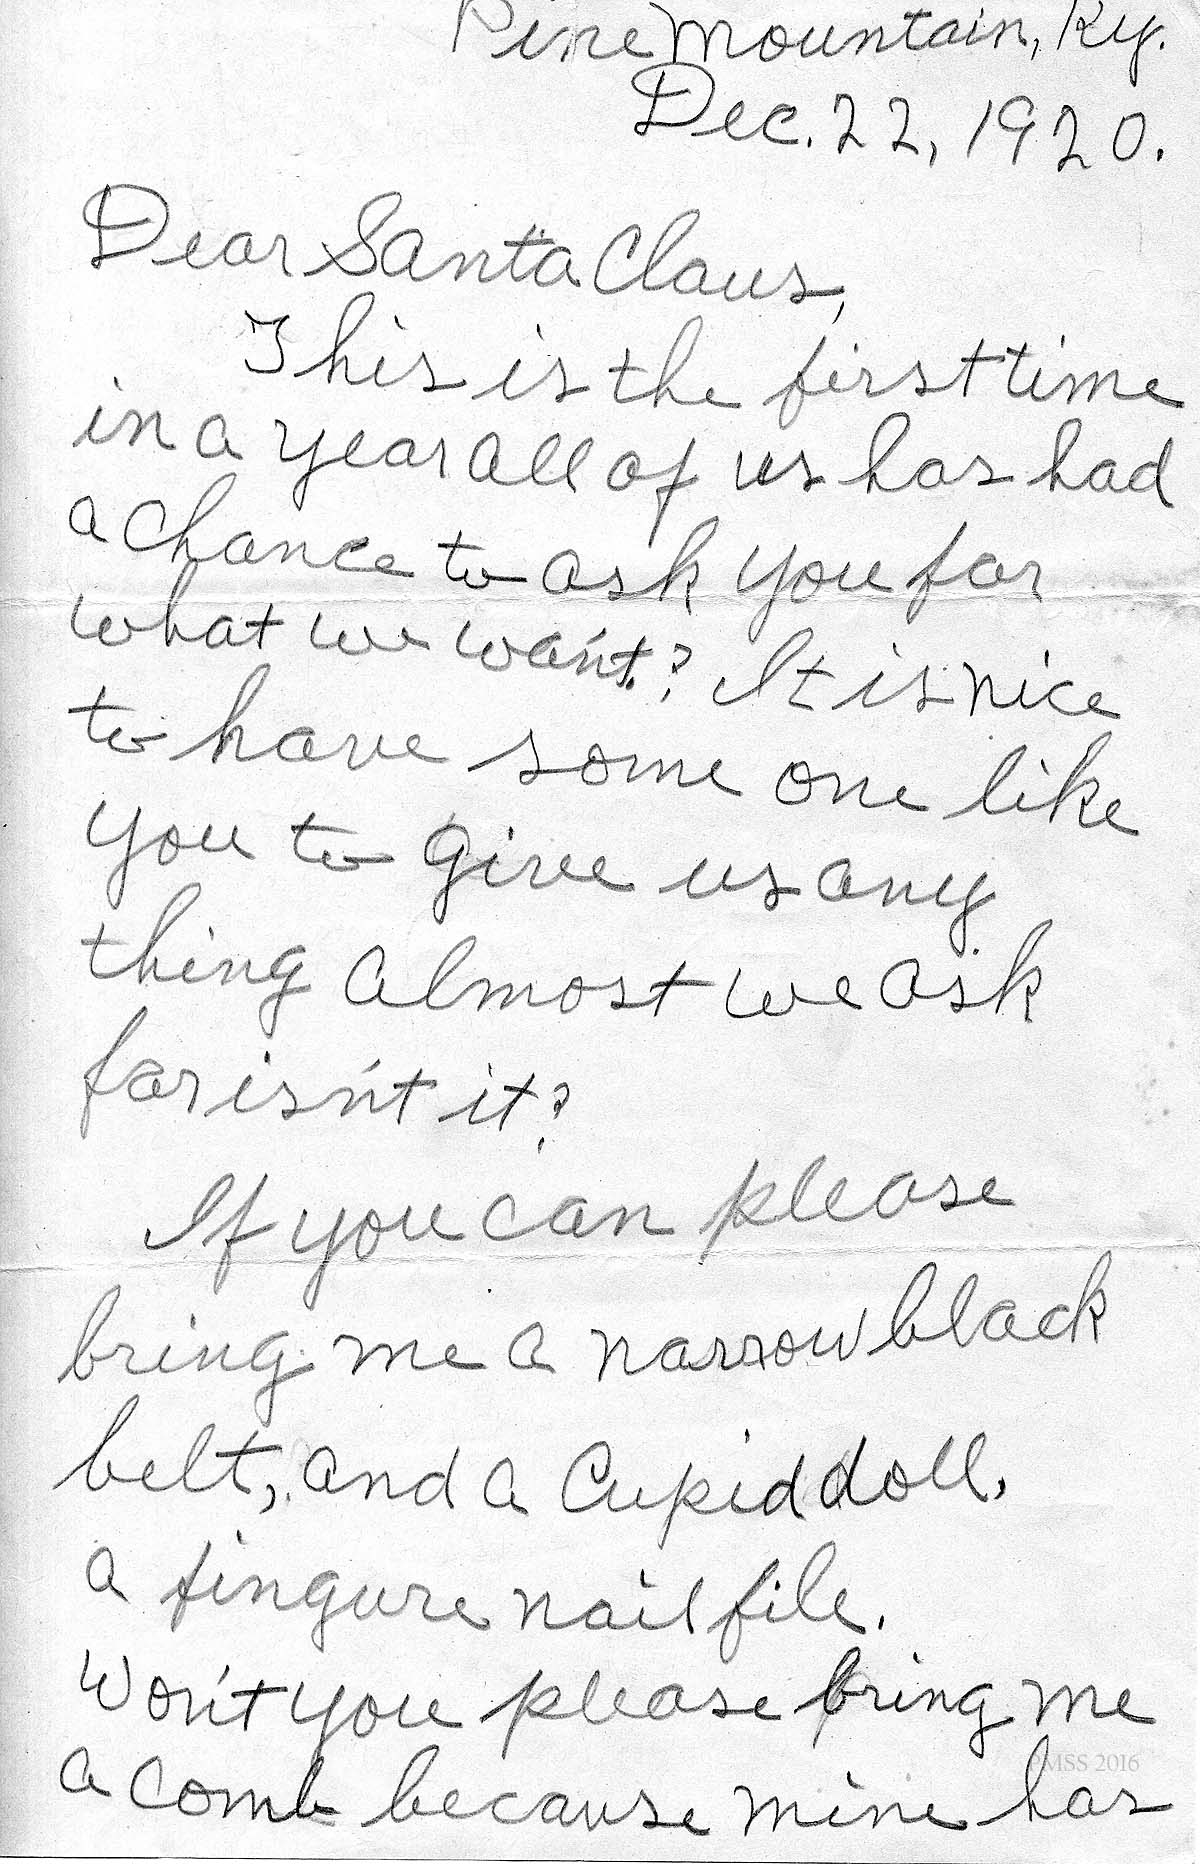 Pine Mountain, Ky.
Dec. 22, 1920.
Dear Santa Claus,
This is the first time
in a year all of us has had
a chance to ask you for
what we wan't.? It is nice
to have some one like
you to give us any
thing almost we ask
for isn't it?
If you can please
bring me a narrow black
belt, and a Cupid doll,
a fingure nail file.
Won't you please bring me
a comb because mine has
PMSS 2016